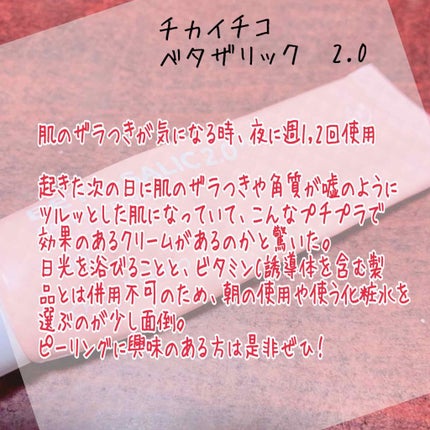 チカイチコ
ベタザリック 2.0
肌のザラつきが気になる時、夜に週1,2回使用
起きた次の日に肌のザラつきや角質が嘘のように
ツルッとした肌になっていて、こんなプチプラで
効果のあるクリームがあるのかと驚いた。
日光を浴びることと、ビタミンC誘導体を含む製
品とは併用不可のため、朝の使用や使う化粧水を
選ぶのが少し面倒。
ピーリングに興味のある方は是非ぜひ！